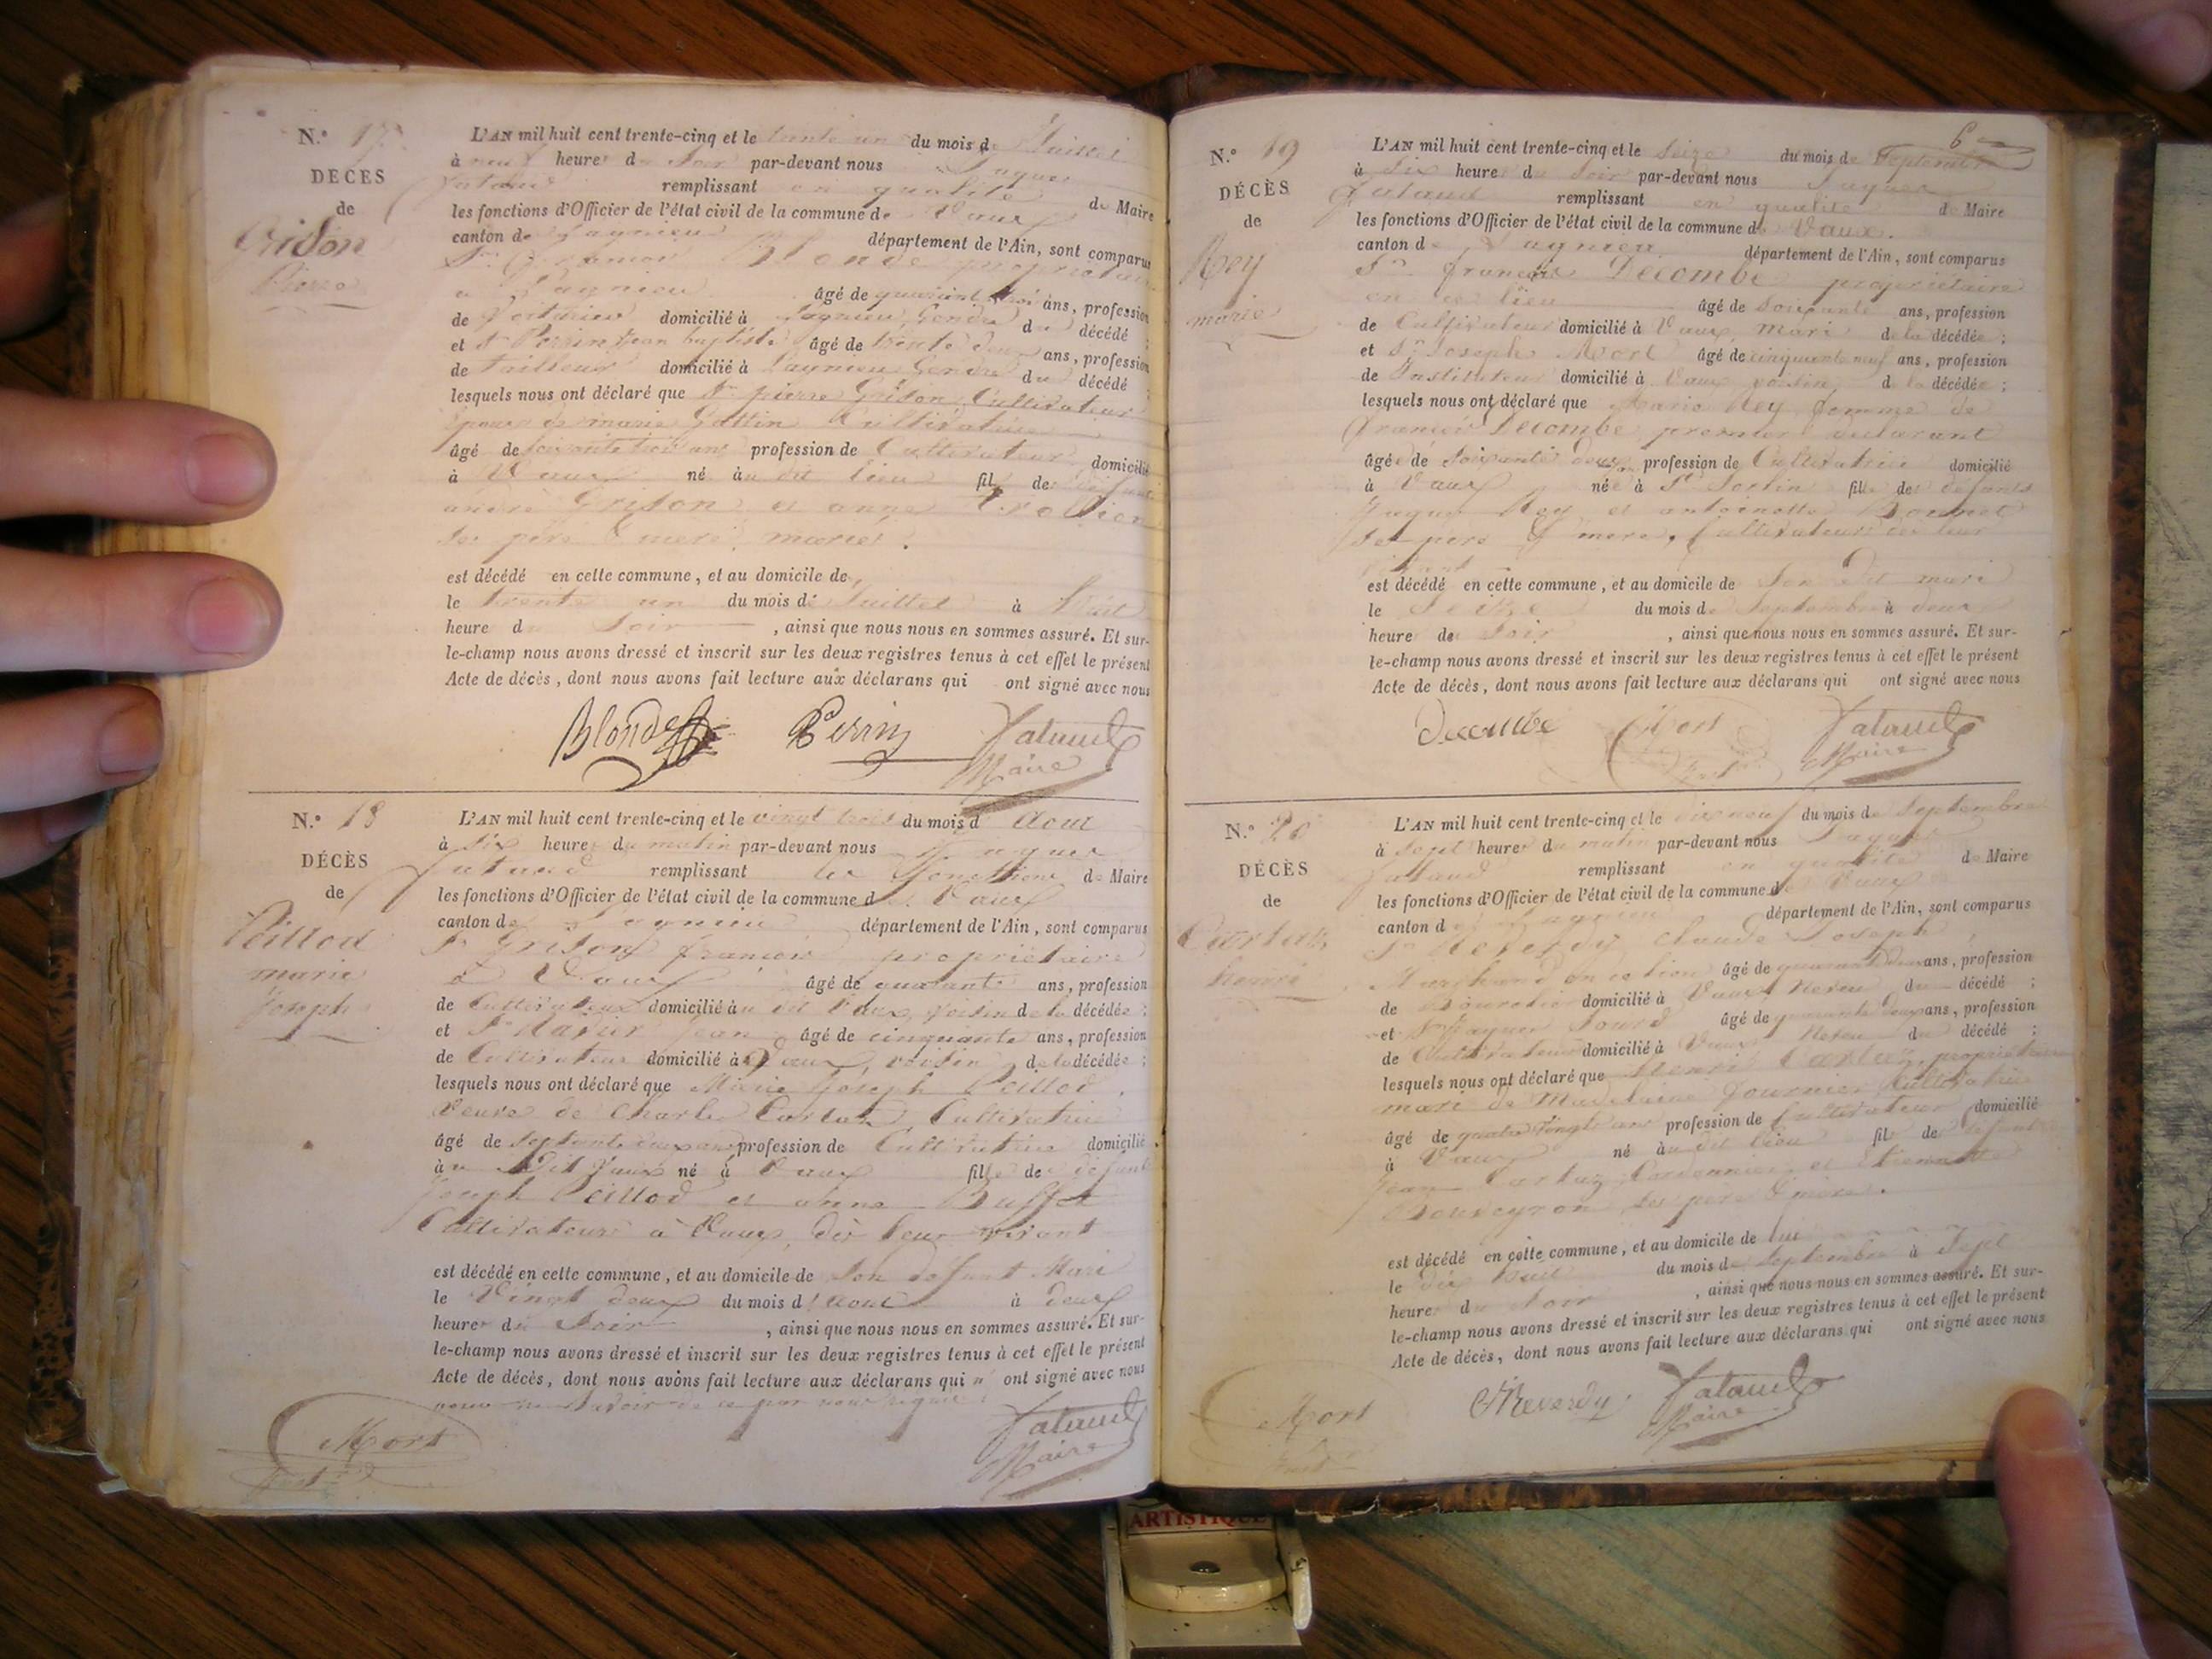 N.° 17
DÉCÈS
de
Grison
Pierre
L'AN mil huit cent trente-cinq et le trente un du mois de Juillet
à neuf heures du Soir par-devant nous Jaques
Jataud remplissant en qualité de Maire
les fonctions d'Officier de l'état civil de la commune de Vaux
canton de Lagnieu département de l'Ain, sont comparus
Sr Blonde propriétaire
a Lagnieu âgé de quarant trois ans, profession
de domicilié à Lagnieu, Gendre du décédé ;
et Sr Perrin Jean baptiste âgé de trente deux ans, profession
de tailleur domicilié à Lagnieu Gendre du décédé ;
lesquels nous ont déclaré que Sr pierre Grison, Cultivateur
époux de marie Gottin Cultivatrice
âgé de soixante trois ans profession de Cultivateur domicilié
à Vaux né au dit lieu fils de défunts
andré Grison et anne
ses père & mère, mariés.
est décédé en cette commune, et au domicile de
le trente un du mois de Juillet à huit
heure du Soir , ainsi que nous nous en sommes assuré. Et sur-
le-champ nous avons dressé et inscrit sur les deux registres tenus à cet effet le présent
Acte de décès, dont nous avons fait lecture aux déclarans qui ont signé avec nous
Blonde Perrin Jataud
Maire
N.° 18
DÉCÈS
de
Peillod
marie
Joseph
L'AN mil huit cent trente-cinq et le vingt trois du mois d Aout
à Six heures du matin par-devant nous Jaques
Jataud remplissant les fonctions de Maire
les fonctions d'Officier de l'état civil de la commune de Vaux
canton de Lagnieu département de l'Ain, sont comparus
Sr Grison francois, propriétaire
à Vaux âgé de quarante ans, profession
de Cultivateur domicilié au dit Vaux, voisin de la décédée ;
et Sr Jean âgé de cinquante ans, profession
de Cultivateur domicilié à Vaux, voisin de la décédée ;
lesquels nous ont déclaré que Marie Joseph Peillod,
veuve de Charles Cartaz, Cultivatrice
âgé de septante deux ans profession de Cultivatrice domicilié
au dit Vaux né à Vaux fille de défunts
Joseph Peillod et anne Buffet
Cultivateurs à Vaux, dès leur vivant
est décédé en cette commune, et au domicile de son défunt Mari
le Vingt deux du mois d'Aout à deux
heures du Soir , ainsi que nous nous en sommes assuré. Et sur-
le-champ nous avons dressé et inscrit sur les deux registres tenus à cet effet le présent
Acte de décès, dont nous avons fait lecture aux déclarans qui n' ont signé avec nous
pour ne savoir de ce par nous requis.
Mort Jataud
Maire
6
N.° 19
DÉCÈS
de
Rey
marie
L'AN mil huit cent trente-cinq et le Seize du mois de Septembre
à Six heures du Soir par-devant nous Jaques
Jataud remplissant en qualité de Maire
les fonctions d'Officier de l'état civil de la commune de Vaux.
canton de Lagnieu département de l'Ain, sont comparus
Sr francois Decombe propriétaire
en ce lieu âgé de Soixante ans, profession
de Cultivateur domicilié à Vaux, mari de la décédée ;
et Sr Joseph Mort âgé de cinquante neuf ans, profession
de Instituteur domicilié à Vaux voisin de la décédée ;
lesquels nous ont déclaré que Marie Rey femme de
francois Decombe, premier déclarant
âgée de Soixante deux ans profession de Cultivatrice domicilié
à Vaux née à St Sorlin fille de défunts
Jaques Rey et antoinette Bonnet
ses père & mère, Cultivateurs dès leur
vivant
est décédé en cette commune, et au domicile de Son dit mari
le Seize du mois de Septembre à deux
heure du Soir , ainsi que nous nous en sommes assuré. Et sur-
le-champ nous avons dressé et inscrit sur les deux registres tenus à cet effet le présent
Acte de décès, dont nous avons fait lecture aux déclarans qui ont signé avec nous
Decombe Mort Jataud
Maire
N.° 20
DÉCÈS
de
Cartaz
henri
L'AN mil huit cent trente-cinq et le dix neuf du mois de Septembre
à Sept heures du matin par-devant nous Jaques
Jataud remplissant en qualité de Maire
les fonctions d'Officier de l'état civil de la commune de Vaux
canton de Lagnieu département de l'Ain, sont comparus
Sr Reverdy Claude Joseph,
Marchand en ce lieu âgé de quarante deux ans, profession
de domicilié à Vaux, Neveu du décédé ;
et Sr Jaques Jourd âgé de quarante deux ans, profession
de Cultivateur domicilié à Vaux Neveu du décédé ;
lesquels nous ont déclaré que Henri Cartaz, propriétaire
mari de Madelaine fournier Cultivatrice
âgé de quatre vingts ans profession de Cultivateur domicilié
à Vaux né au dit lieu fils de défunts
Jean Cartaz, Cordonnier et Etiennette
Bouveyron ses père & mère.
est décédé en cette commune, et au domicile de lui
le dix huit du mois de Septembre à Sept
heures du Soir , ainsi que nous nous en sommes assuré. Et sur-
le-champ nous avons dressé et inscrit sur les deux registres tenus à cet effet le présent
Acte de décès, dont nous avons fait lecture aux déclarans qui ont signé avec nous
Mort Reverdy Jataud
Maire
ARTISTIQUE